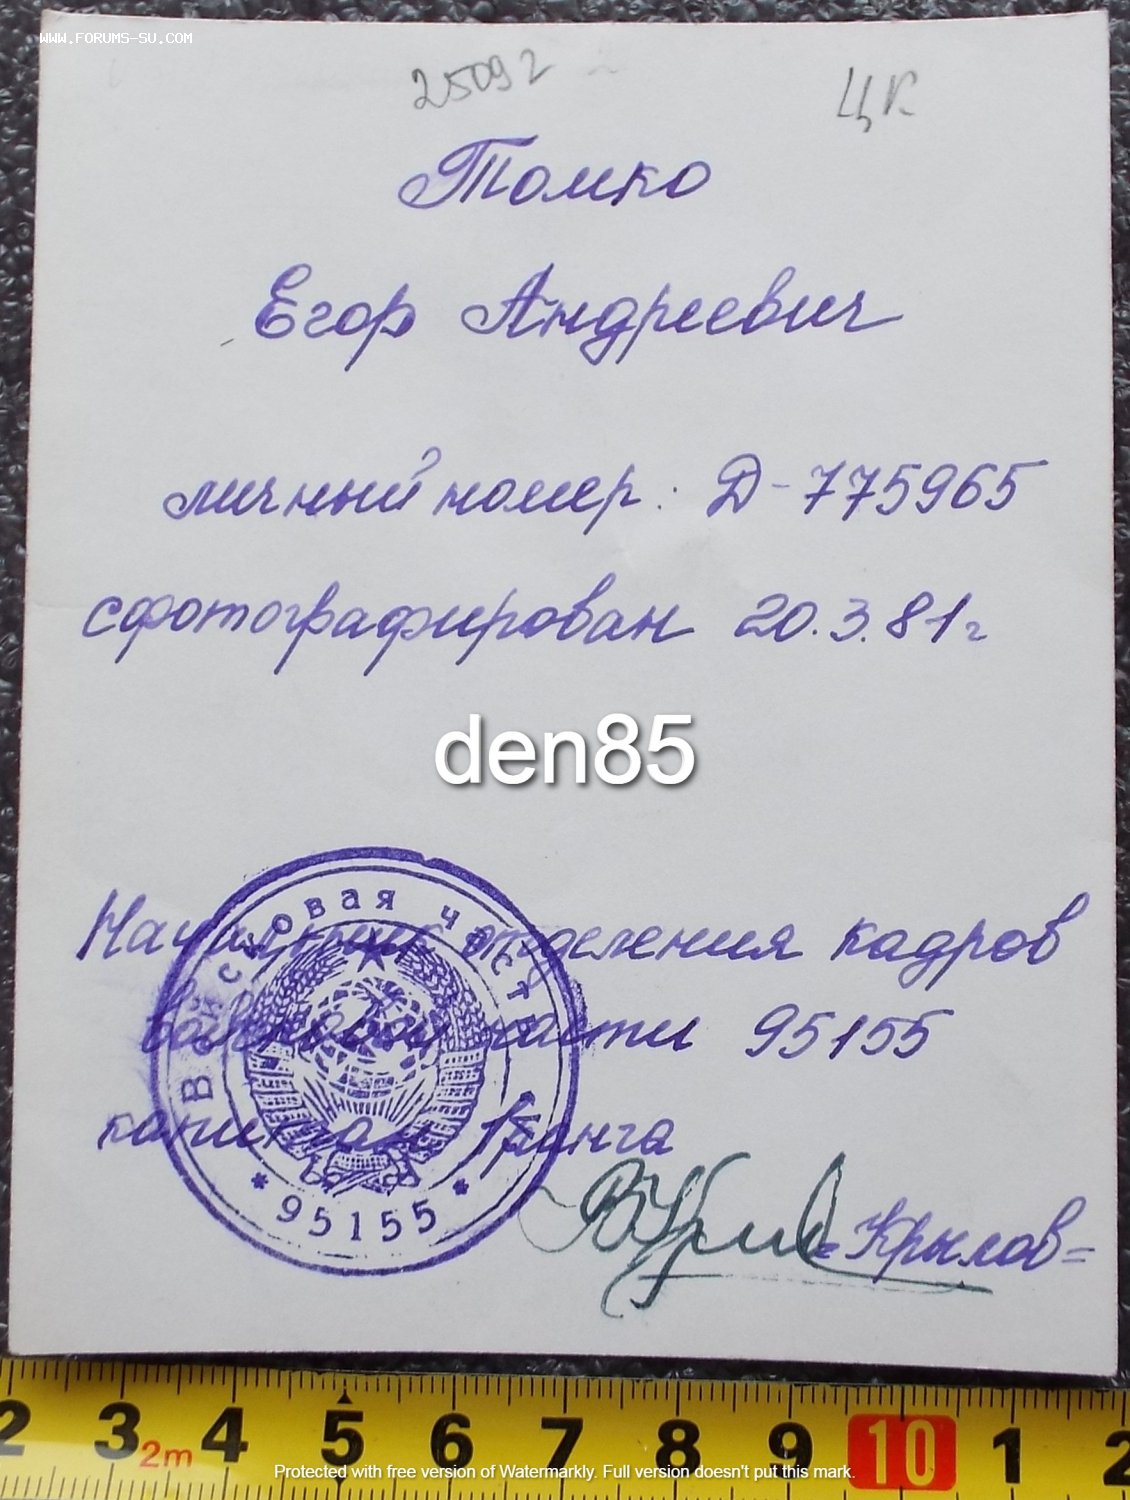 www.forums-su.com
25092
ЦК
Томко
Егор Андреевич
личный номер: Д-775965
сфотографирован 20.3.81г
den85
Начальник отделения кадров
войсковой части 95155
капитан 1 ранга
=Крылов=
Войсковая часть
* 95155 *
2 3 2m 4 5 6 7 8 9 10 1 2
Protected with free version of Watermarkly. Full version doesn't put this mark.